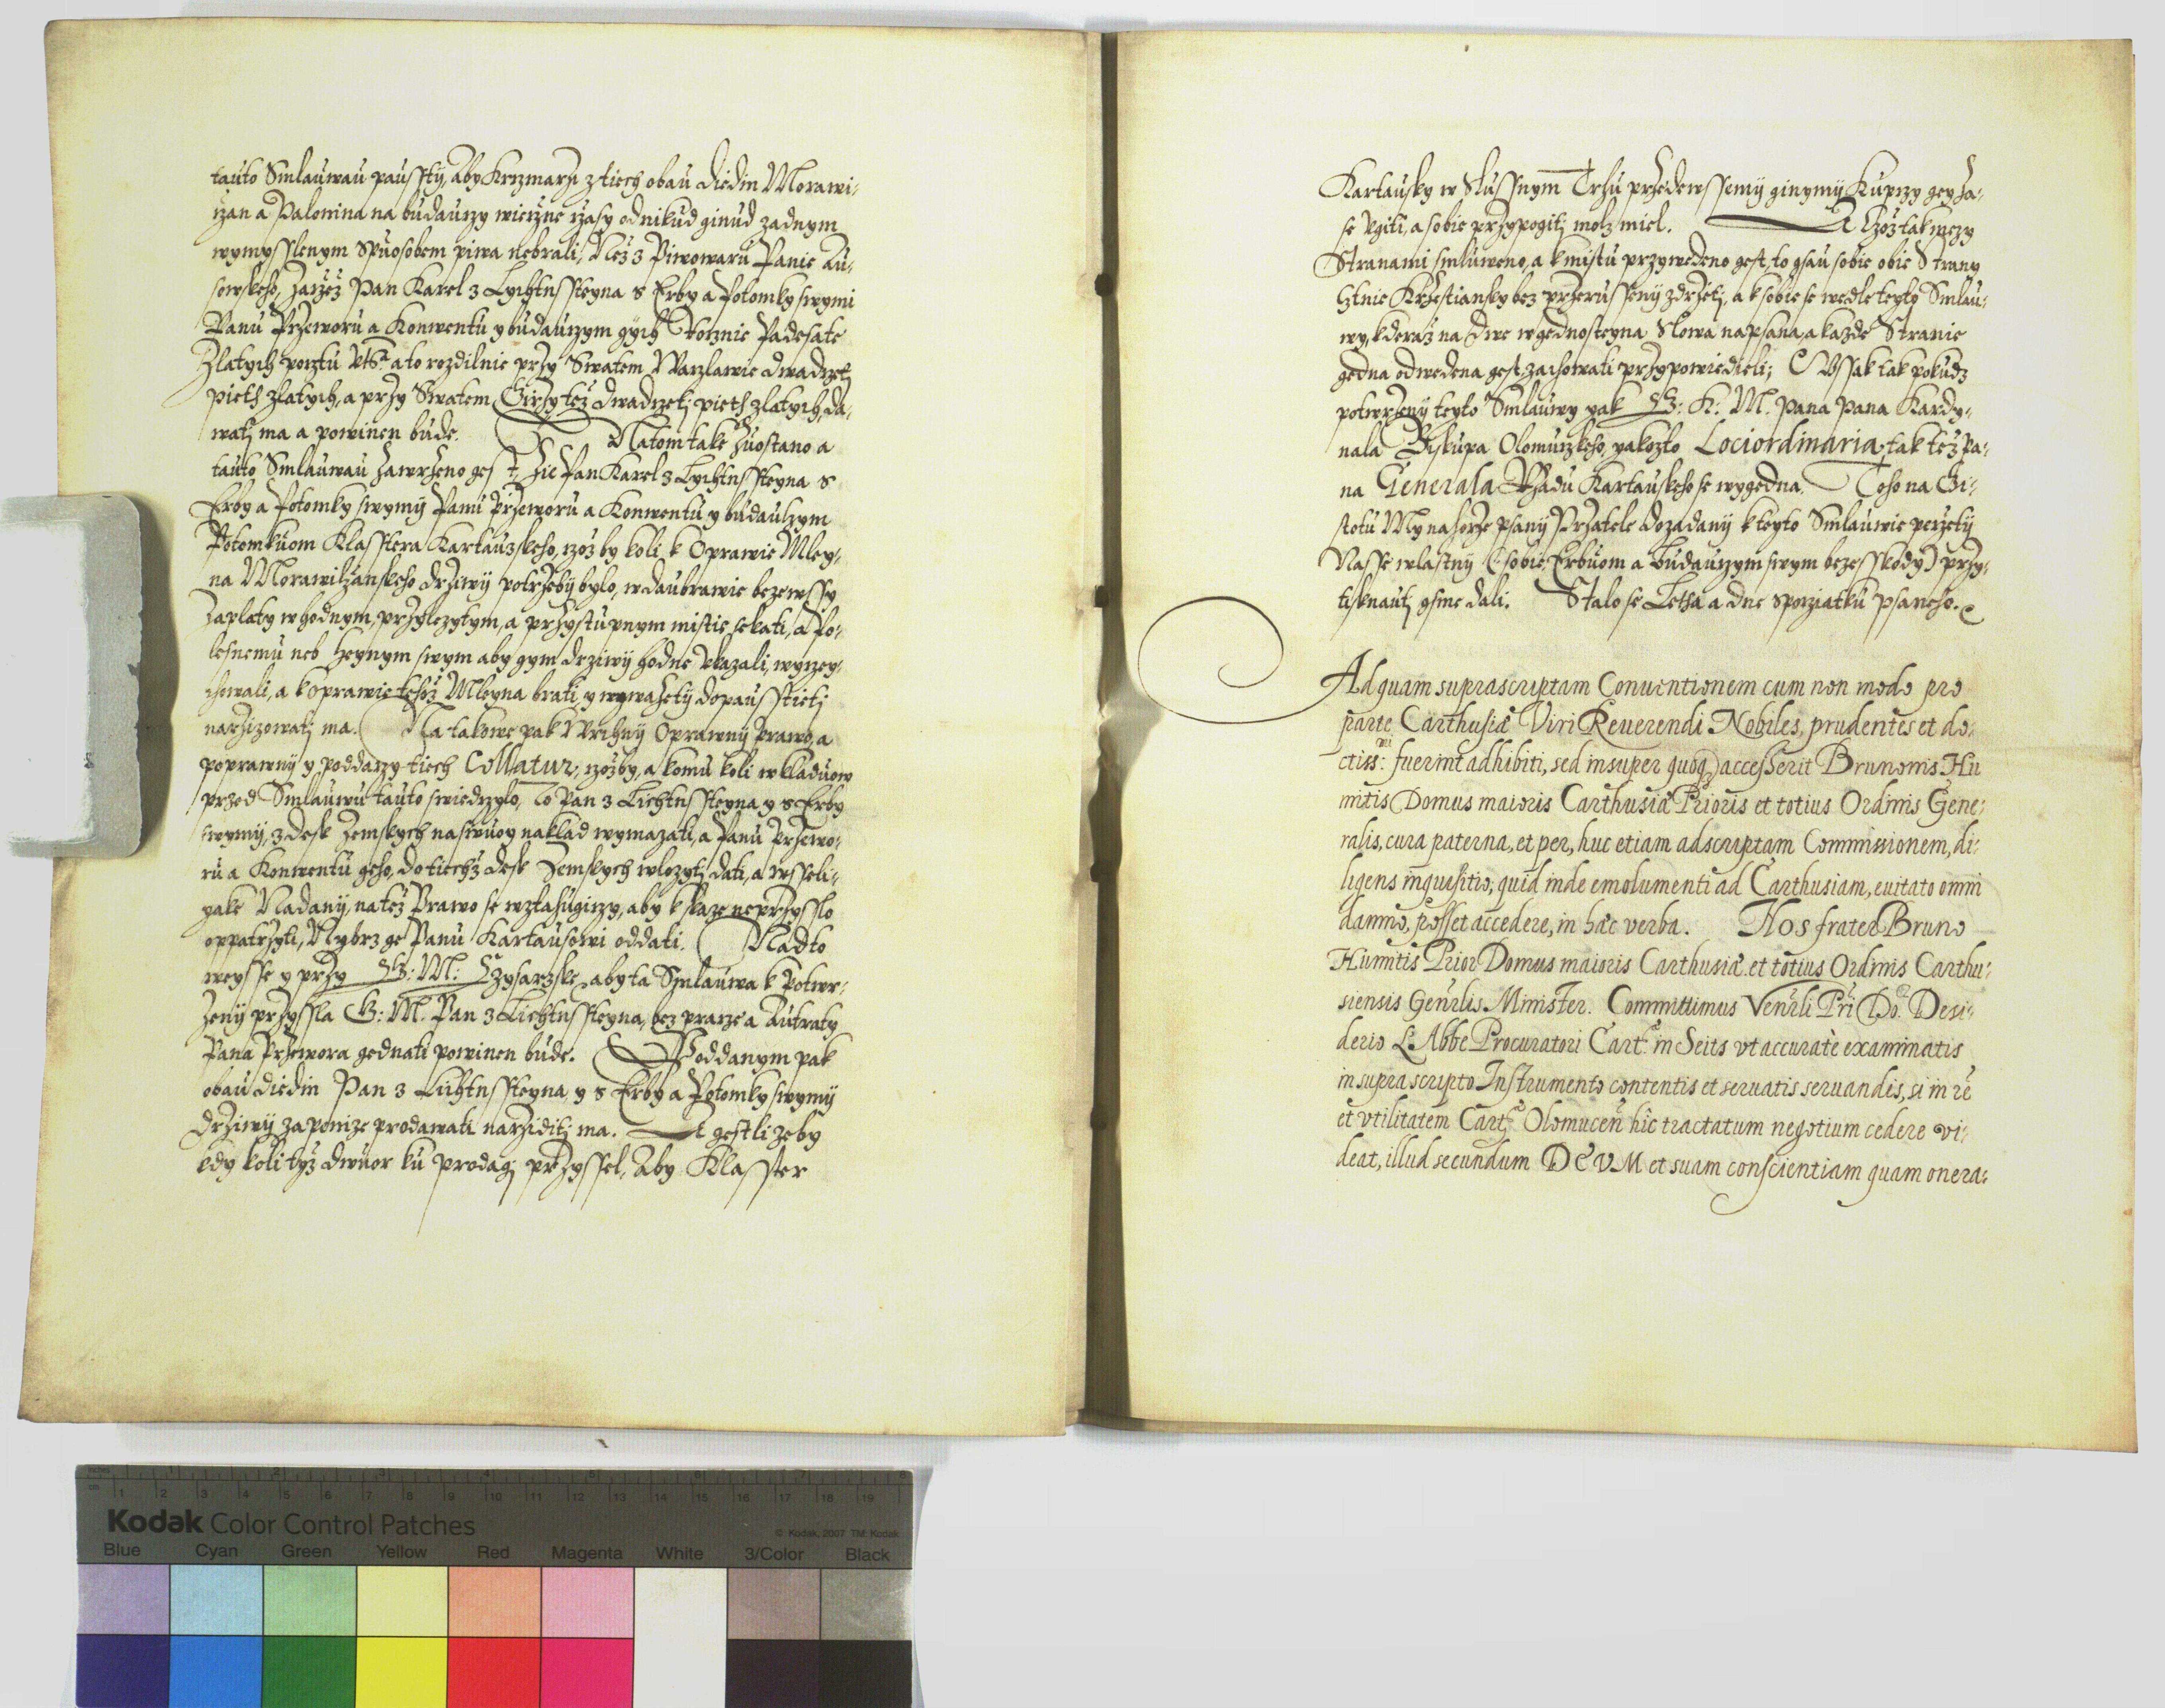 tauto Smlauwau pausstij, aby Krczmarzi z tiech obau diedin Morawi-
czan a Palonina na budauczy wieczne czasy odnikud ginud zadnym
wymysslenym Spuosobem piwa nebrali, Nez z Piwowaru Panie Au-
sowskeho, zaczez Pan Karel z Lychtnssteyna s Erby a Potomky swymi
Panu Przeworu a Konwentu y budauczym gich Rocznie Padesate
Zlatych porztu a to rozdilnie przy Swatem Waczlawie dwadczetj
pieth zlatych, a przy Swatem Girzy tez dwadczetj pieth zlatych, da-
watj ma a powinen bude. Natom take zuostano a
tauto Smlauwau zawrzeno gest, zie Pan Karel z Lychtnssteyna s
Erby a Potomky swymij Panu Przeworu a Konwentu y budauczym
Potomkuom Klasstera Kartauzskeho, czoz by koli k Oprawie Mley-
na Morawiczanskeho drziwij potrzebij bylo, w daubrawie bezewssy
zaplaty w hodnym, przylezytym, a przystupnym mistie sekati, a Po-
lesnemu neb Heynym swym aby gym drziwij hodne ukazali, wyczey-
chowali, a k oprawie tehoz Mleyna brati y wywazetij dopausstietj
narzizowatj ma. Na takowe pak Wrchnij Oprawnij Prawo a
poprawnij y poddaczy tiech Collatur, czozby, a komu koli w kladuow
przed Smlauwu tauto swiedczylo, To Pan z Lichtnssteyna y s Erby
swymij, z desk Zemskych na swuoy naklad wymazati, a Panu Przewo-
ru a Konwentu geho, do tiechz desk Zemskych wlozytj dati, a wsseli-
yake Nadanij, na tez Prawo se wztahugiczy, aby k skaze neprzysslo
oppatrzyti, Nybrz ge Panu Kartausowi oddati. Nadto
weysse y przy G: M: Czysarzske, aby ta Smlauwa k Potwr-
zenij przyssla G: M. Pan z Lichtnssteyna, bez pracze a Autraty
Pana Przewora gednati powinen bude. Poddanym pak
obau diedin Pan z Lichtnssteyna y s Erby a Potomky swymij
drziwij za penize prodawati narziditj ma. A gestlizeby
kdy koli tyz dwuor ku prodagj przyssel, Aby Klasster
Kartausky w Slussnym Trhu przedewssemij ginymij Kupczy gey za-
se ugiti, a sobie przypogitj moh miel. A czoz tak mezy
Stranami smluweno, a k mistu przywedeno gest, to gsau sobie obie Strany
Cztnie Krzestiansky bez przerussenij zdrzetj, a k sobie se wedle teyto Smlau-
wy, kderaz na dwe w gednosteyna Slowa napsana, a kazde Stranie
gedna odwedena gest, zachowati przypowiedieli; Wssak tak pokudz
potwrzenij teyto Smlauwy yak G: K: M. Pana Pana Kardy-
nala Biskupa Olomuczkeho, yakozto Lociordinaria, tak tez Pa-
na Generala Rzadu Kartauskeho se wygedna. Toho na Gi-
stotu My nahorze psanij Przatele dozadanij k teyto Smlauwie peczetij
Nasse wlastnij (: sobie, Erbuom a Budauczym swym bezesskody) przy-
tisknautj gsme dali. Stalo se Letha a dne Spocziatku psaneho.
Ad quam suprascriptam Conuentionem cum non modo pro
parte Carthusiæ Viri Reuerendi Nobiles, prudentes et do-
ctiss: fuerint adhibiti, sed insuper quoq; accesserit Brunonis Hu
mitis Domus maioris Carthusiæ Prioris et totius Ordinis Gene-
ralis, cura paterna, et per, huc etiam adscriptam Commissionem, di-
ligens inquisitio, quid inde emolumenti ad Carthusiam, euitato omni
damno, posset accedere, in hæc verba. Nos frater Bruno
Humitis Prior Domus maioris Carthusiæ et totius Ordinis Carthu-
siensis Genrlis Minister. Committimus Venrli Pri Do: Desi-
derio L'Abbe Procuratori Cart: in Seits vt accuratè examinatis
in supra scripto Instrumento contentis et seruatis seruandis, si in rē
et vtilitatem Cart: Olomucen hic tractatum negotium cedere vi-
deat, illud secundum DEUM et suam conscientiam quam onera-
Kodak Color Control Patches
© Kodak, 2007 TM: Kodak
Blue Cyan Green Yellow Red Magenta White 3/Color Black